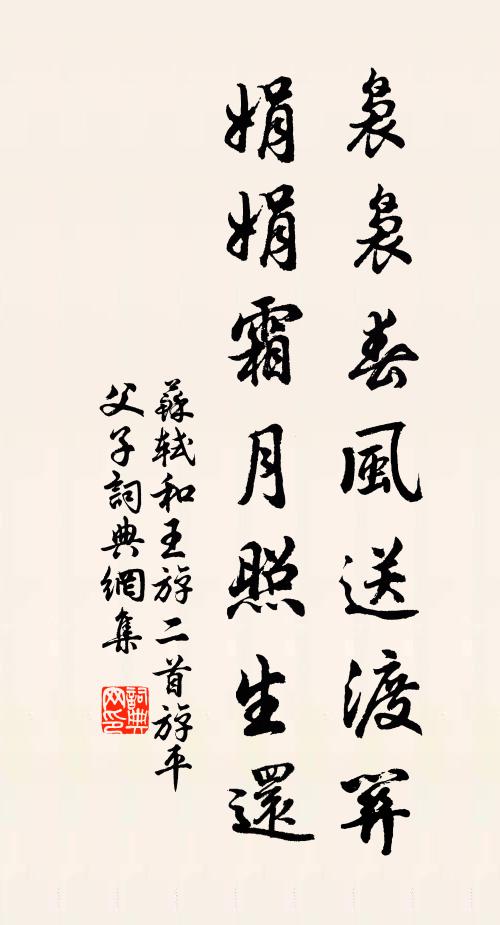 袅袅春風送渡關
娟娟霜月照生還
蘇軾和王斿二首斿平
父子詞典網集
詞典
网印